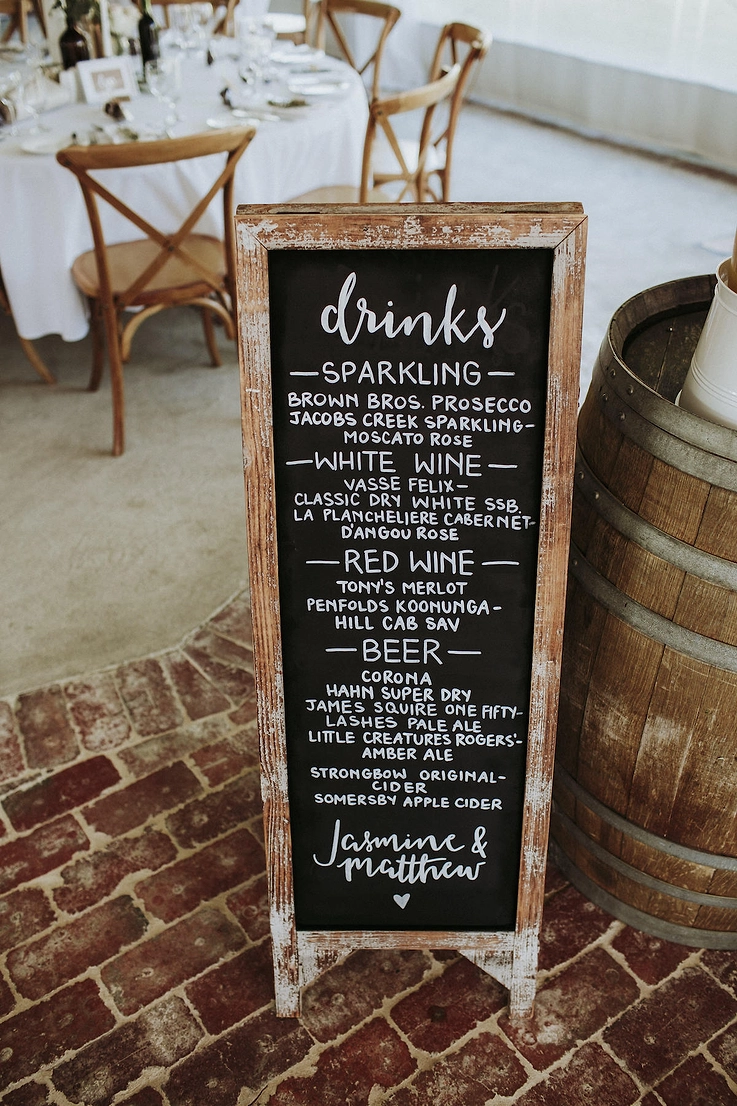 drinks
—SPARKLING—
BROWN BROS. PROSECCO
JACOBS CREEK SPARKLING-
MOSCATO ROSE
—WHITE WINE—
VASSE FELIX-
CLASSIC DRY WHITE SSB.
LA PLANCHELIERE CABERNET-
D'ANGOU ROSE
—RED WINE—
TONY'S MERLOT
PENFOLDS KOONUNGA-
HILL CAB SAV
—BEER—
CORONA
HAHN SUPER DRY
JAMES SQUIRE ONE FIFTY-
LASHES PALE ALE
LITTLE CREATURES ROGERS'-
AMBER ALE
STRONGBOW ORIGINAL-
CIDER
SOMERSBY APPLE CIDER
Jasmine &
matthew